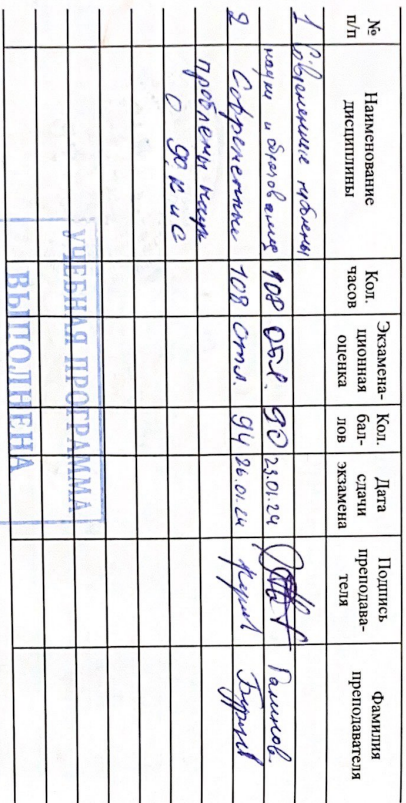 № п/п
Наименование дисциплины
Кол. часов
Экзамена-ционная оценка
Кол. бал-лов
Дата сдачи экзамена
Подпись преподава-теля
Фамилия преподавателя
1 Современные проблемы
науки и образования 108 90 23.01.24
2 Современные 108 отл. 94 26.01.24
проблемы наук
о ФК и С
УЧЕБНАЯ ПРОГРАММА
ВЫПОЛНЕНА